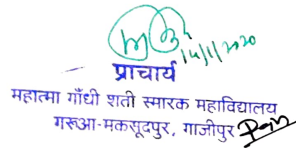 14/1/2020
प्राचार्य
महात्मा गाँधी शती स्मारक महाविद्यालय
गरूआ-मकसूदपुर, गाजीपुर